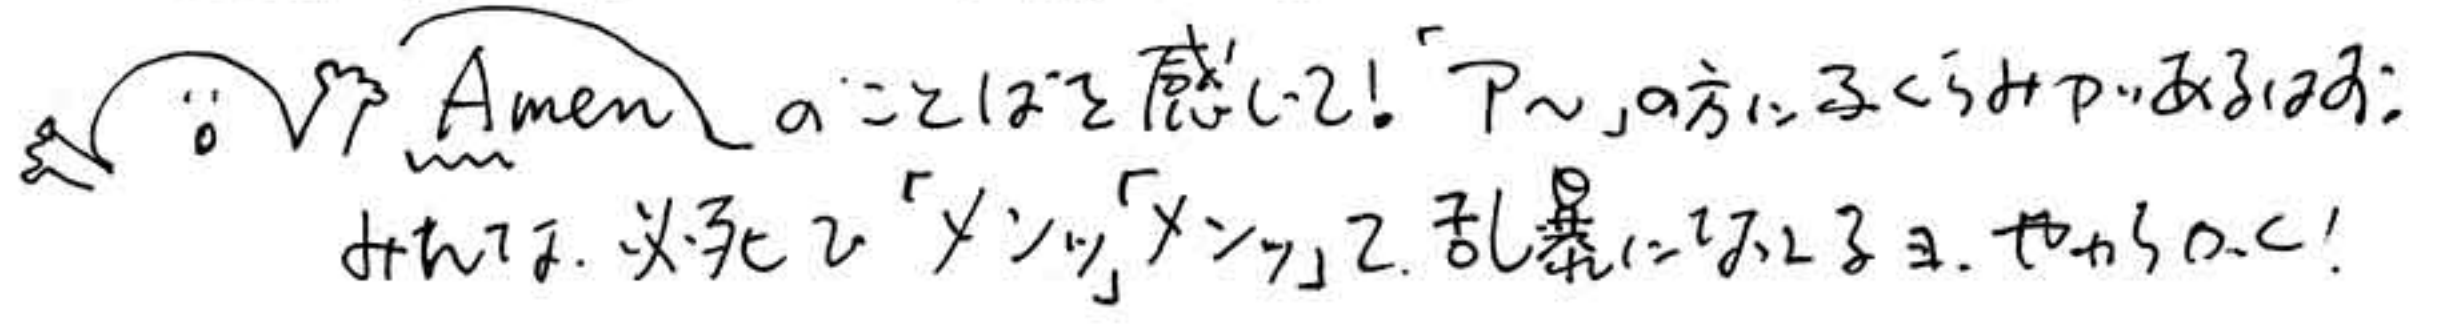 Amenのことばを感じて！「ア～」の方にふくらみがあるはず。
みんな、必死で「メンッ」「メンッ」て、乱暴になってるヨ、やわらかく！